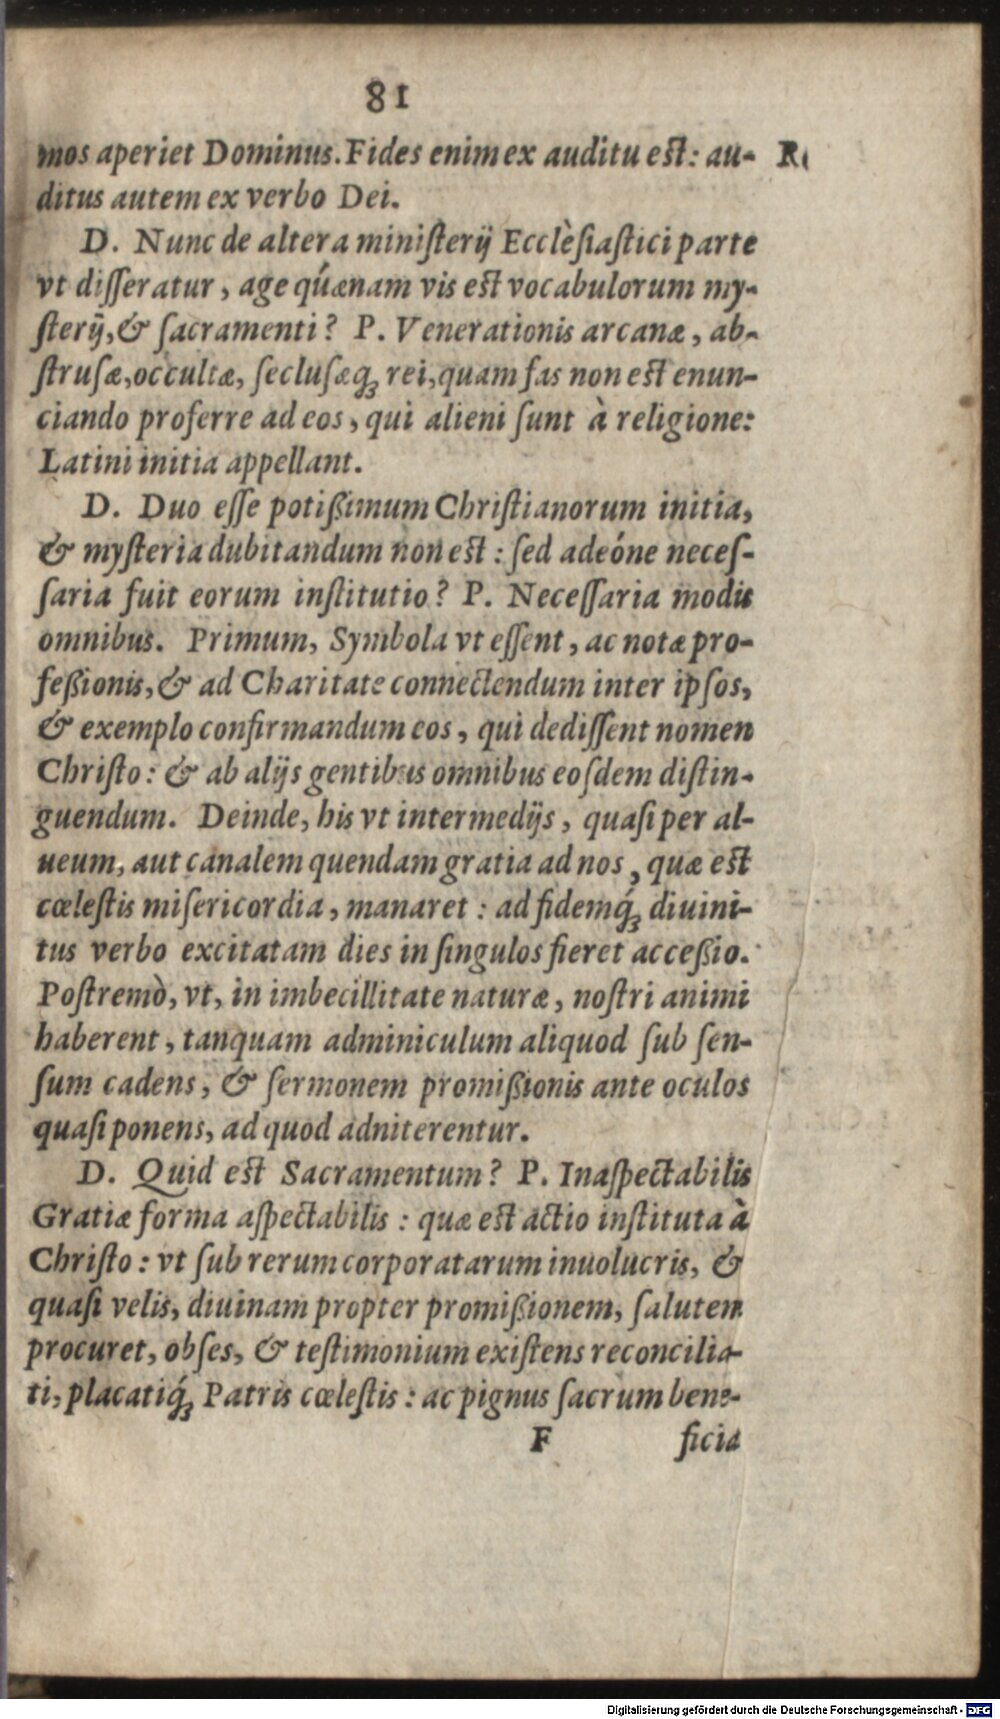 81
mos aperiet Dominus. Fides enim ex auditu est: au- R
ditus autem ex verbo Dei.
D. Nunc de altera ministerij Ecclèsiastici parte
vt disseratur, age quǽnam vis est vocabulorum my-
sterij, & sacramenti? P. Venerationis arcanæ, ab-
strusæ, occultæ, seclusæq́; rei, quam fas non est enun-
ciando proferre ad eos, qui alieni sunt à religione:
Latini initia appellant.
D. Duo esse potißimum Christianorum initia,
& mysteria dubitandum non est: sed adeóne neces-
saria fuit eorum institutio? P. Necessaria modis
omnibus. Primum, Symbola vt essent, ac notæ pro-
feßionis, & ad Charitate connectendum inter ipsos,
& exemplo confirmandum eos, qui dedissent nomen
Christo: & ab alijs gentibus omnibus eosdem distin-
guendum. Deinde, his vt intermedijs, quasi per al-
ueum, aut canalem quendam gratia ad nos, quæ est
cœlestis misericordia, manaret: ad fidemq́; diuini-
tus verbo excitatam dies in singulos fieret acceßio.
Postremò, vt, in imbecillitate naturæ, nostri animi
haberent, tanquam adminiculum aliquod sub sen-
sum cadens, & sermonem promißionis ante oculos
quasi ponens, ad quod adniterentur.
D. Quid est Sacramentum? P. Inaspectabilis
Gratiæ forma aspectabilis: quæ est actio instituta à
Christo: vt sub rerum corporatarum inuolucris, &
quasi velis, diuinam propter promißionem, salutem
procuret, obses, & testimonium existens reconcilia-
ti, placatiq́; Patris cœlestis: ac pignus sacrum bene-
F ficia
Digitalisierung gefördert durch die Deutsche Forschungsgemeinschaft - DFG